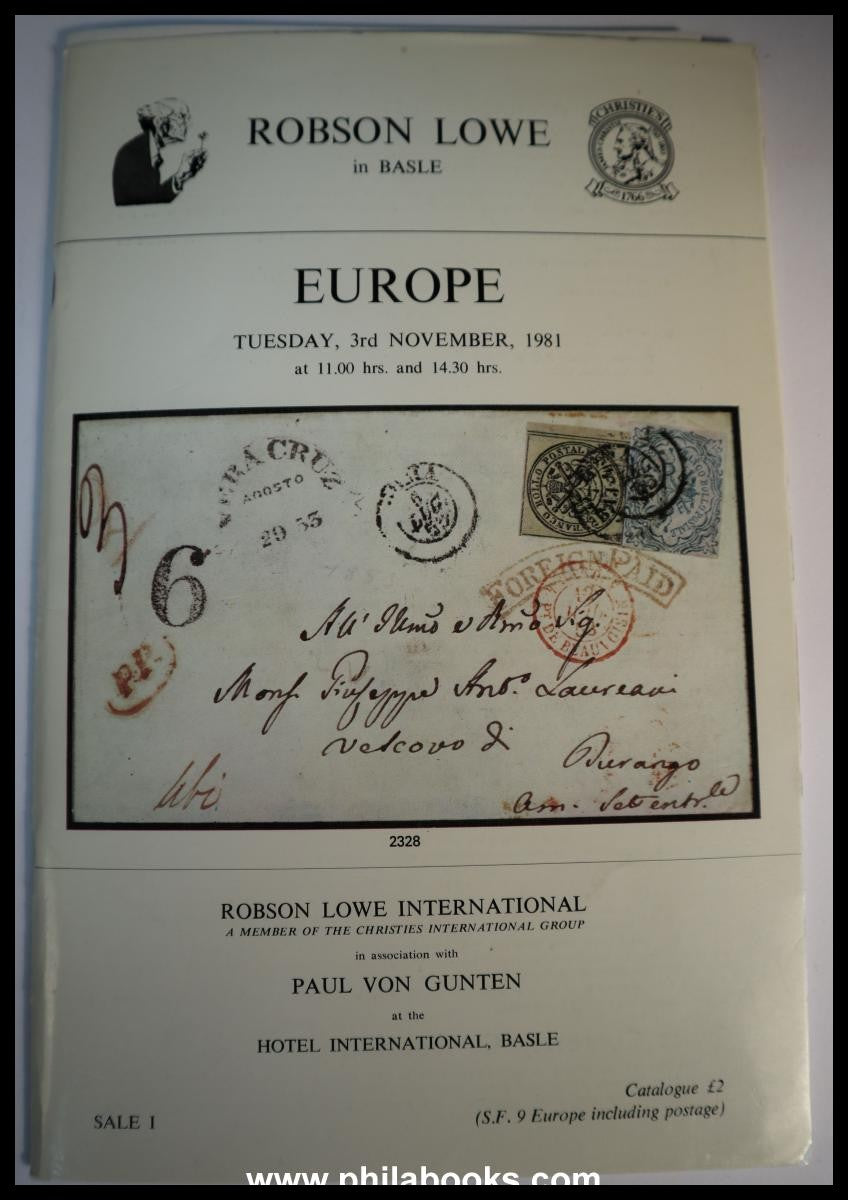 ROBSON LOWE
in BASLE
CHRISTIE'S
1766
EUROPE
TUESDAY, 3rd NOVEMBER, 1981
at 11.00 hrs. and 14.30 hrs.
VERA CRUZ
AGOSTO
29 53
6
FRANCO BOLLO POSTALE
FOREIGN PAID
P.P.
All' Illmo e Rmo Sig.
Monsr Giuseppe Anto. Laureani
Vescovo di Durango
Am. Settentrle
Ubi
2328
ROBSON LOWE INTERNATIONAL
A MEMBER OF THE CHRISTIES INTERNATIONAL GROUP
in association with
PAUL VON GUNTEN
at the
HOTEL INTERNATIONAL, BASLE
Catalogue £2
SALE I
(S.F. 9 Europe including postage)
www.philabooks.com